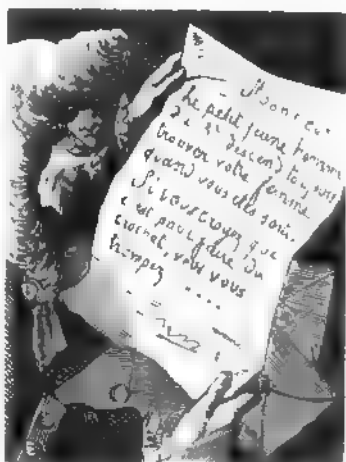 Monsieur
Le petit jeune homme
descend toujours
trouver votre femme
quand vous êtes sorti.
Si vous croyez que
c'est pour faire du
crochet, vous vous
trompez ....